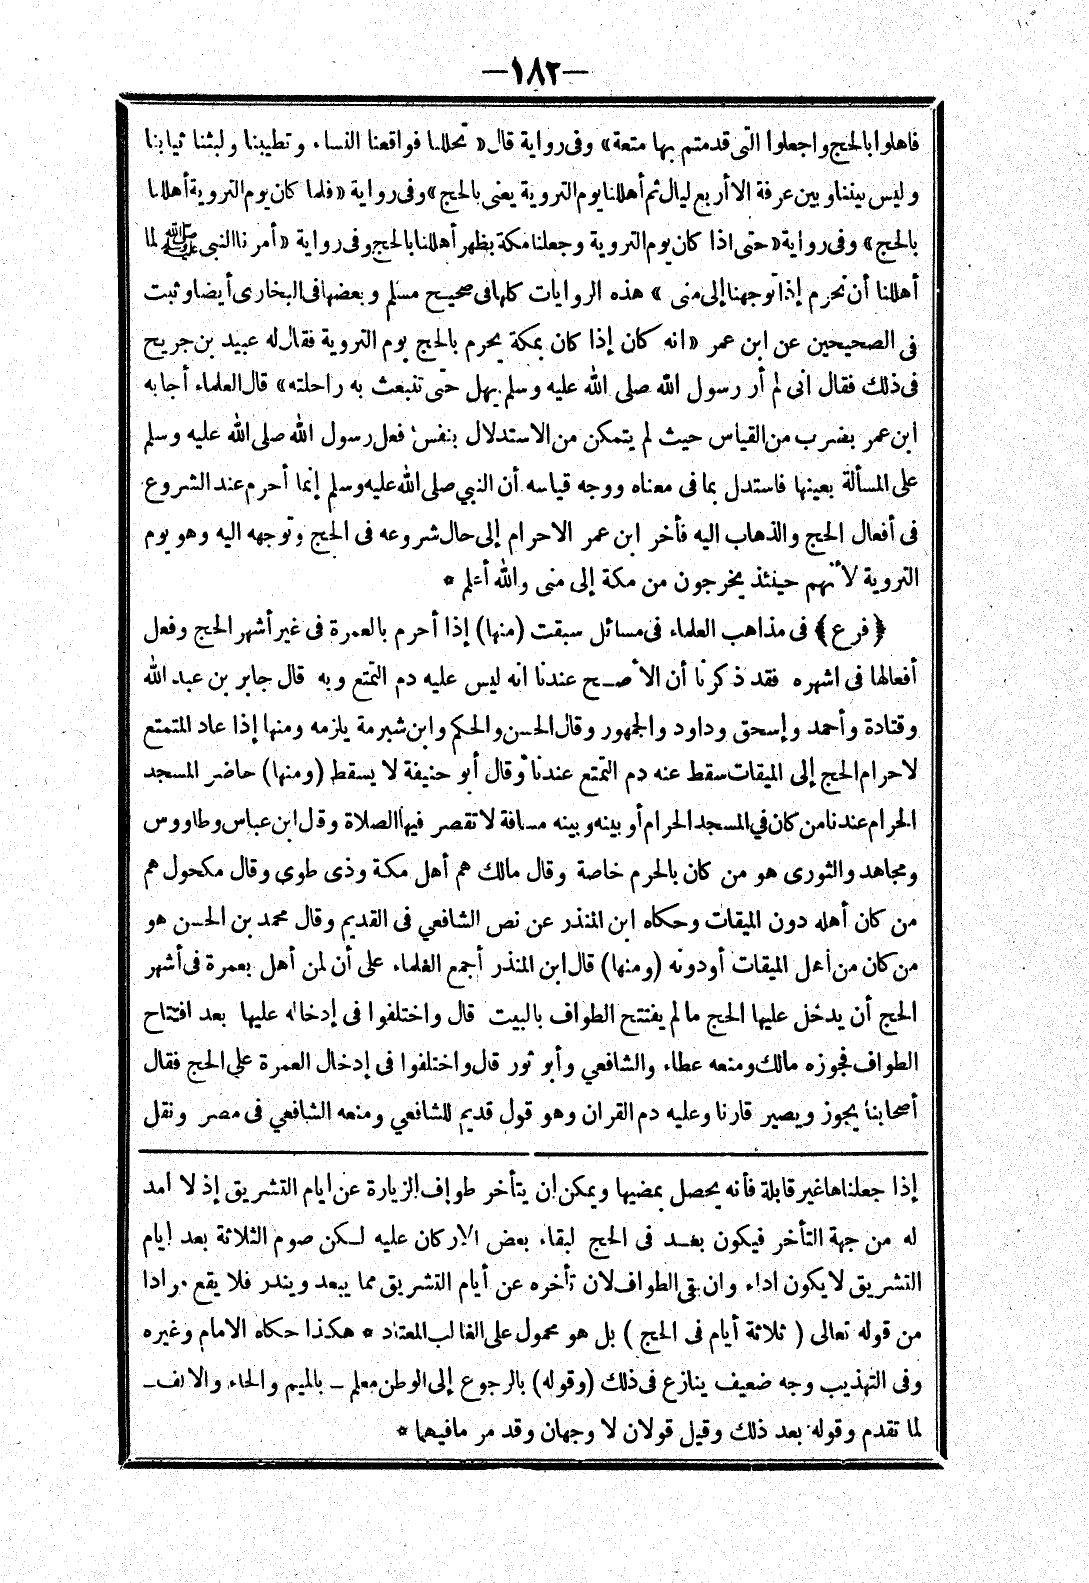 —١٨٢—
فاهلوا بالحج واجعلوا التى قدمتم بها متعة» وفى رواية قال « تحللنا فواقعنا النساء وتطيبنا ولبثنا ثيابنا
وليس بيننا وبين عرفة الا أربع ليال ثم أهللنا يوم التروية يعنى بالحج» وفى رواية «فلما كان يوم التروية أهللنا
بالحج» وفى رواية «حتى اذا كان يوم التروية وجعلنا مكة بظهر أهللنا بالحج وفى رواية «أمرنا النبى ﷺ لما
أهللنا أن نحرم إذا توجهنا إلى منى » هذه الروايات كلها فى صحيح مسلم وبعضها فى البخارى أيضا وثبت
فى الصحيحين عن ابن عمر «انه كان إذا كان بمكة يحرم بالحج يوم التروية فقال له عبيد بن جريح
فى ذلك فقال انى لم أر رسول الله صلى الله عليه وسلم يهل حتى تنبعث به راحلته» قال العلماء أجابه
ابن عمر بضرب من القياس حيث لم يتمكن من الاستدلال بنفس فعل رسول الله صلى الله عليه وسلم
على المسألة بعينها فاستدل بما فى معناه ووجه قياسه أن النبي صلى الله عليه وسلم إنما أحرم عند الشروع
فى أفعال الحج والذهاب اليه فأخر ابن عمر الاحرام إلى حال شروعه فى الحج وتوجهه اليه وهو يوم
التروية لأنهم حينئذ يخرجون من مكة إلى منى والله أعلم *
﴿فرع﴾ فى مذاهب العلماء فى مسائل سبقت (منها) إذا أحرم بالعمرة فى غير أشهر الحج وفعل
أفعالها فى اشهره فقد ذكرنا أن الأصح عندنا انه ليس عليه دم التمتع وبه قال جابر بن عبد الله
وقتادة وأحمد وإسحق وداود والجمهور وقال الحسن والحكم وابن شبرمة يلزمه ومنها إذا عاد المتمتع
لاحرام الحج إلى الميقات سقط عنه دم التمتع عندنا وقال أبو حنيفة لا يسقط (ومنها) حاضر المسجد
الحرام عندنا من كان في المسجد الحرام أو بينه وبينه مسافة لا تقصر فيها الصلاة وقل ابن عباس وطاووس
ومجاهد والثورى هو من كان بالحرم خاصة وقال مالك هم أهل مكة وذى طوى وقال مكحول هم
من كان أهله دون الميقات وحكاه ابن المنذر عن نص الشافعي فى القديم وقال محمد بن الحسن هو
من كان من أهل الميقات أودونه (ومنها) قال ابن المنذر أجمع العلماء على أن لمن أهل بعمرة فى أشهر
الحج أن يدخل عليها الحج مالم يفتتح الطواف بالبيت قال واختلفوا فى إدخاله عليها بعد افتتاح
الطواف فجوزه مالك ومنعه عطاء والشافعي وأبو ثور قال واختلفوا فى إدخال العمرة على الحج فقال
أصحابنا يجوز ويصير قارنا وعليه دم القران وهو قول قديم للشافعي ومنعه الشافعي فى مصر ونقل
إذا جعلناها غير قابلة فأنه يحصل بمضيها ويمكن ان يتأخر طواف الزيارة عن ايام التشريق إذ لا امد
له من جهة التأخر فيكون بعد فى الحج لبقاء بعض الاركان عليه لكن صوم الثلاثة بعد ايام
التشريق لايكون اداء وان بقى الطواف لان تأخره عن أيام التشريق مما يبعد ويندر فلا يقع مرادا
من قوله تعالى ( ثلاثة أيام فى الحج ) بل هو محمول على الغالب المعتاد * هكذا حكاه الامام وغيره
وفى التهذيب وجه ضعيف ينازع فى ذلك (وقوله) بالرجوع إلى الوطن معلم ــ بالميم والحاء والالف ــ
لما تقدم وقوله بعد ذلك وقيل قولان لا وجهان وقد مر مافيهما *